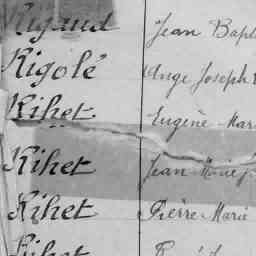 Rigaud Jean Bap
Rigolé Ange Joseph
Rihet Eugène Mari
Rihet Jean Marie
Rihet Pierre Marie
Rihet